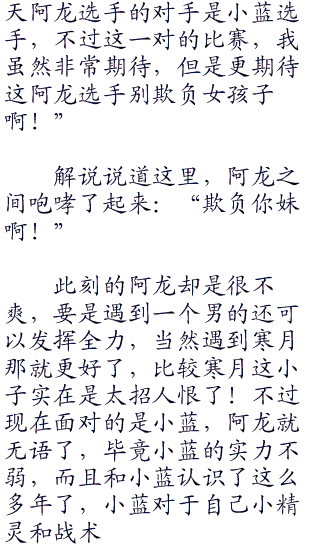 天阿龙选手的对手是小蓝选
手，不过这一对的比赛，我
虽然非常期待，但是更期待
这阿龙选手别欺负女孩子
啊！”
解说说道这里，阿龙之
间咆哮了起来：“欺负你妹
啊！”
此刻的阿龙却是很不
爽，要是遇到一个男的还可
以发挥全力，当然遇到寒月
那就更好了，比较寒月这小
子实在是太招人恨了！不过
现在面对的是小蓝，阿龙就
无语了，毕竟小蓝的实力不
弱，而且和小蓝认识了这么
多年了，小蓝对于自己小精
灵和战术